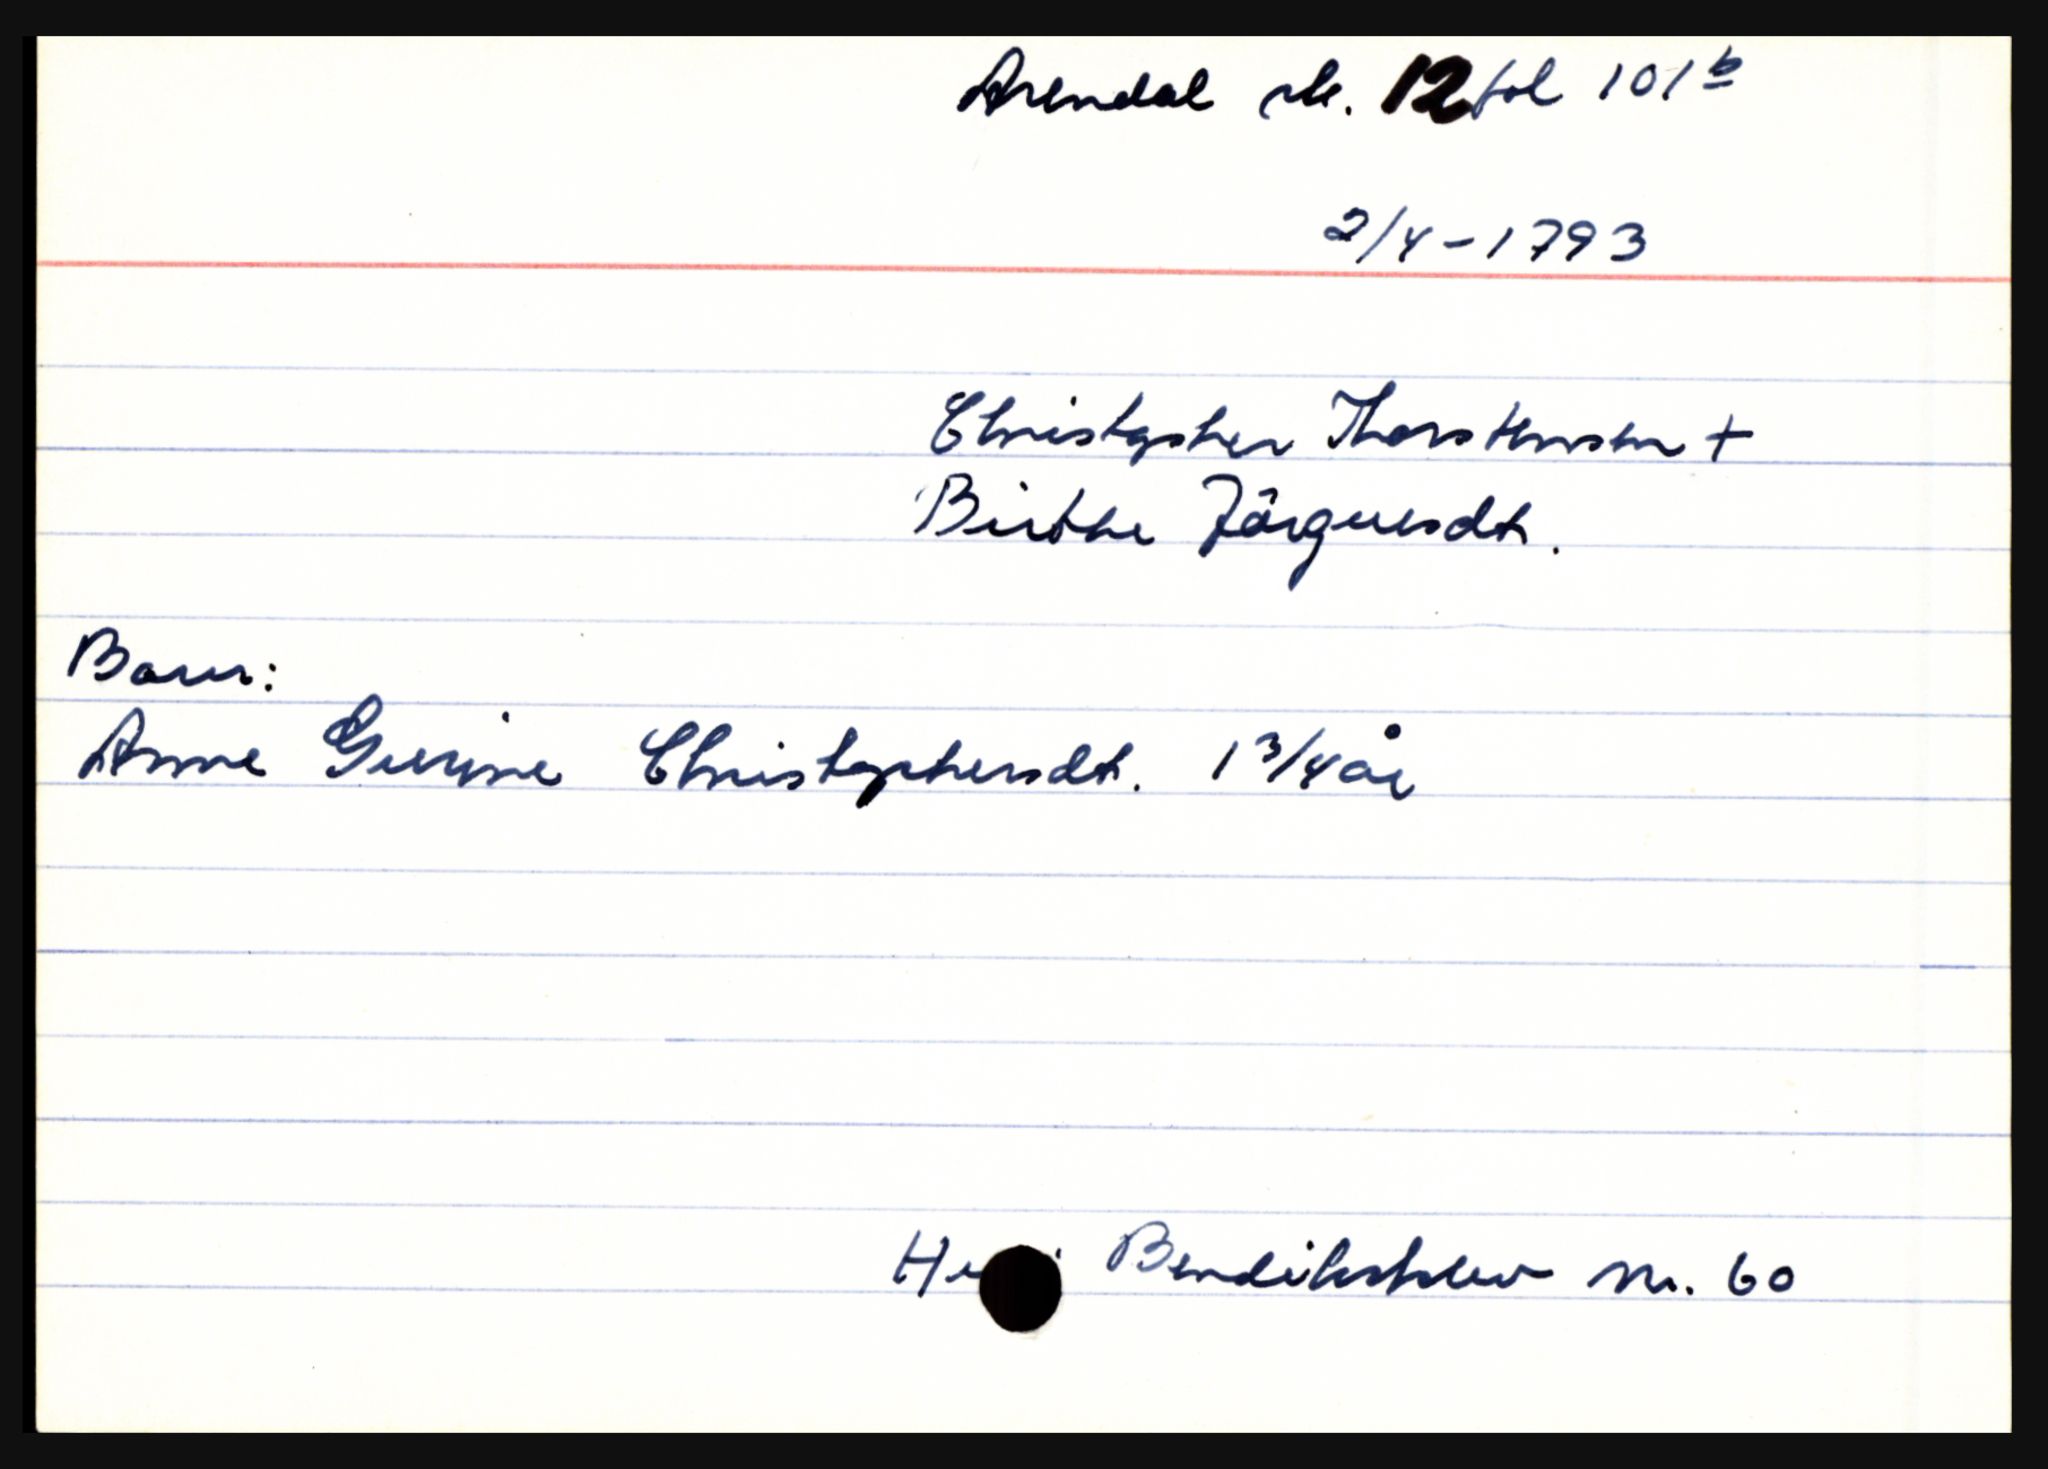 Arendal sk. 12 fol 101 b
2/4-1793
Christopher Thorstensen +
Birthe Jörgensdt.
Barn:
Anne Gurine Christophersdt. 1 3/4 år
Bendiksklev nr. 60